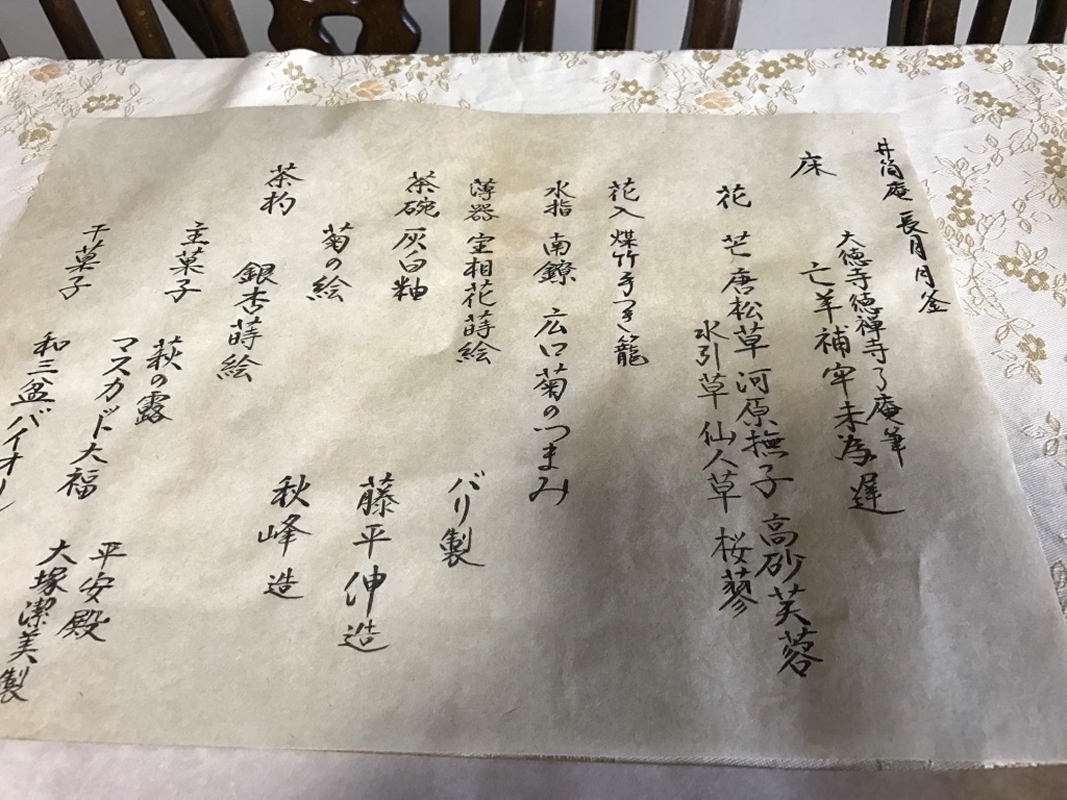 井筒庵 長月月釜
床
大徳寺徳禅寺了庵筆
亡羊補牢未為遅
花 芒 唐松草 河原撫子 高砂芙蓉
水引草 仙人草 桜蓼
花入 煤竹手つき籠
水指 南鐐 広口菊のつまみ
薄器 宝相花蒔絵 バリ製
茶碗 灰白釉 藤平伸造
菊の絵
茶杓 銀杏蒔絵 秋峰造
主菓子 萩の露
マスカット大福 平安殿
干菓子 和三盆バイオリ
大塚潔美製